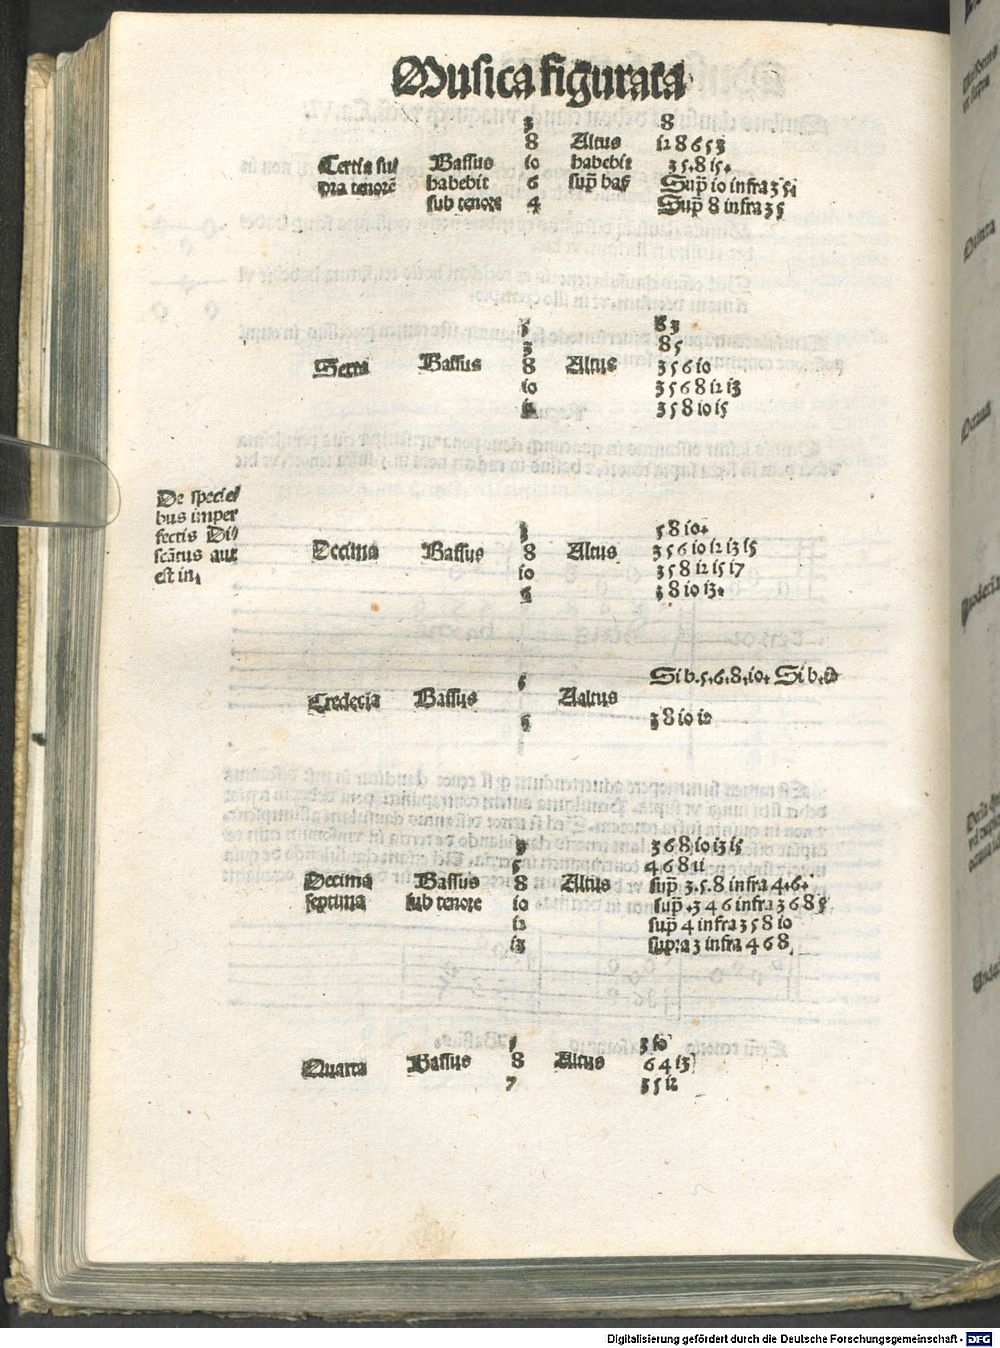 Musica figurata
3 8
8 Altus 12 8 6 5 3
Tertia su/ Bassus 10 habebit 3 5.8 15.
pra tenorē habebit 6 sup̄ bas Sup̄ 10 infra 3 5.
sub tenore 4 Sup̄ 8 infra 3 5
8 3
3 8 5
Sexta Bassus 8 Altus 3 5 6 10
10 3 5 6 8 12 13
12 3 5 8 10 15
De specie/
bus imper
fectis Di/
scātus aut
est in.
3 5 8 10.
Decima Bassus 8 Altus 3 5 6 10 12 13 15
10 3 5 8 12 15 17
6 3 8 10 13.
Si b.5.6.8.10. Si b.
Tredecia Bassus Aaltus
3 8 10 12
3 3 6 8 10 13 15
5 4 6 8 11
Decima Bassus 8 Altus sup̄ 3.5.8 infra 4.6.
septima sub tenore 10 sup̄ .3 4 6 infra 3 6 8
12 sup̄ 4 infra 3 5 8 10
13 supra 3 infra 4 6 8.
5 3 10
Quarta Bassus 8 Altus 6 4 13
7 3 5 12
Digitalisierung gefördert durch die Deutsche Forschungsgemeinschaft - DFG